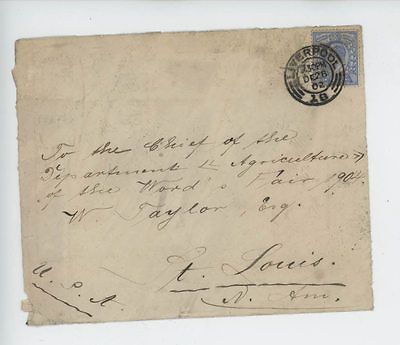 LIVERPOOL
DE 26
02
1B
To the Chief of the
Department of Agriculture
of the Word's Fair 1904
W. Taylor, Esq.
St. Louis.
U. S. A.
N. Am.